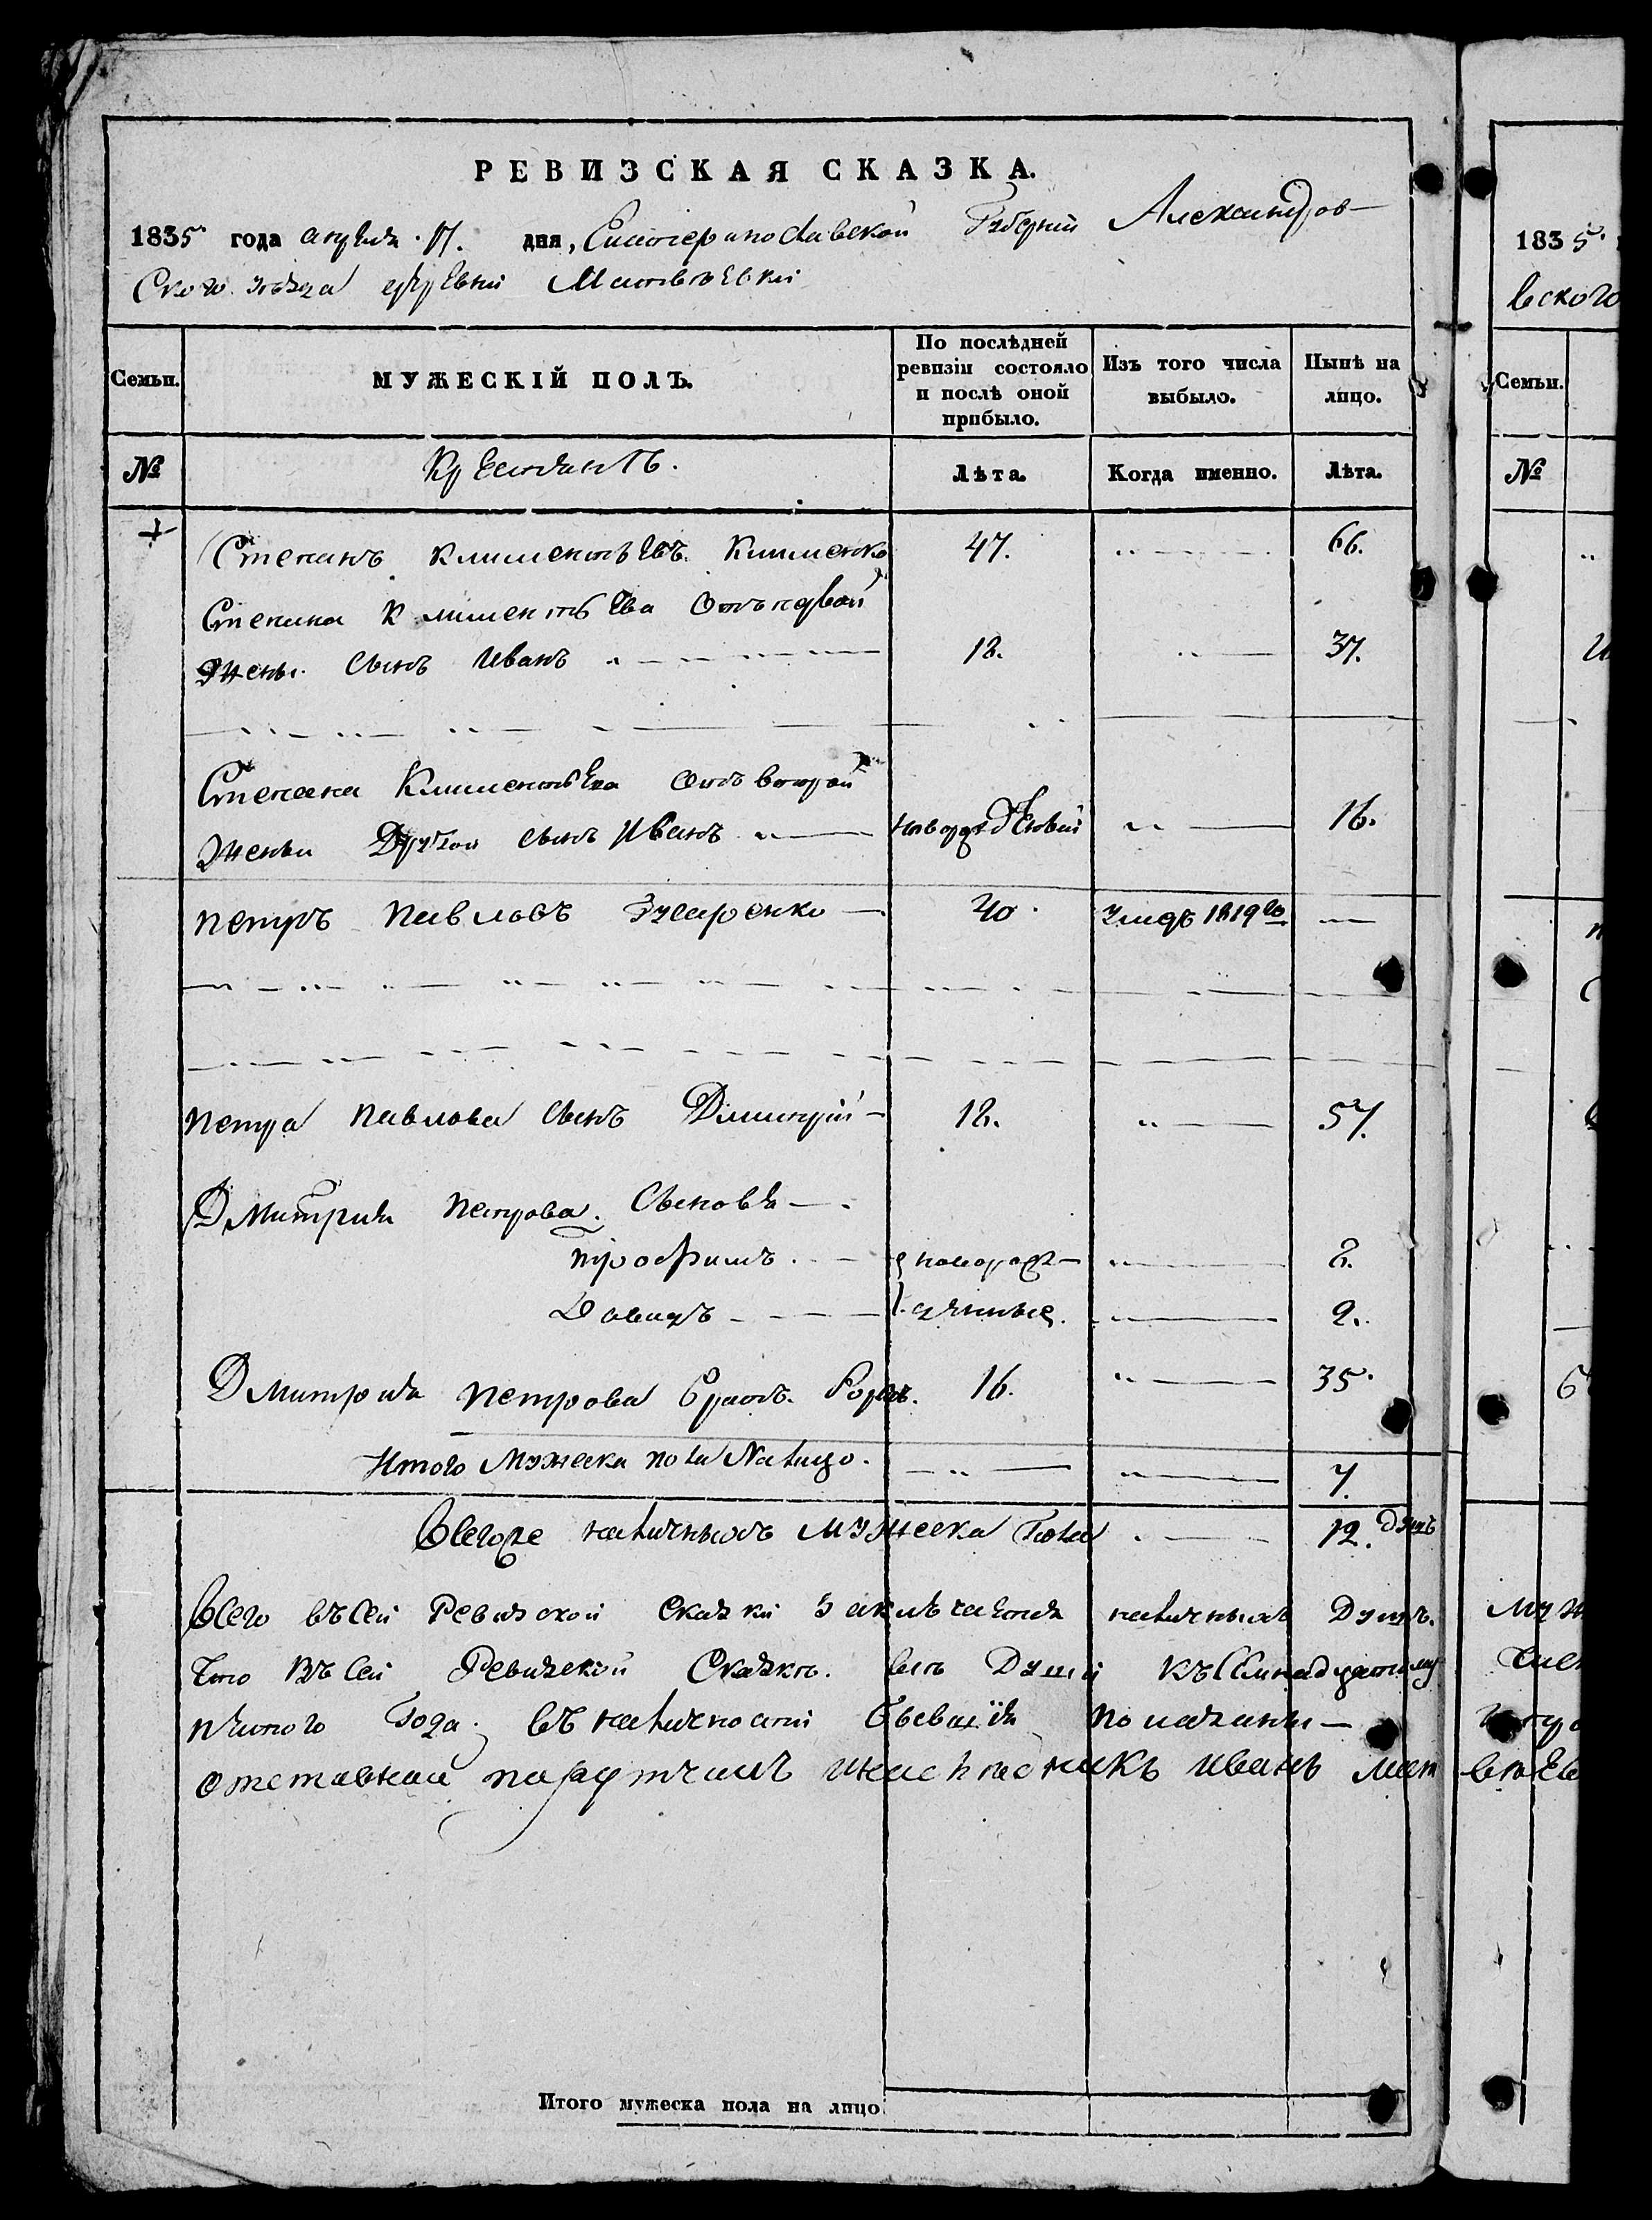 РЕВИЗСКАЯ СКАЗКА.
1835 года апреля 17. дня, Екатеринославской Губерніи Александров-
Ского уѣзда деревни Матвѣевки
183 5.
вского
Семьи.
МУЖЕСКІЙ ПОЛЪ.
По послѣдней ревизіи состояло и послѣ оной прибыло.
Изъ того числа выбыло.
Нынѣ на лицо.
Семьи.
№
Крестьянъ.
Лѣта.
Когда именно.
Лѣта.
№
Степанъ Климентьевъ Клименко 47. 66.
Степана Климентьева Отъ первой
Жены Сынъ Иванъ 18. 37.
Степана Климентьева отъ второй
Жены Другой сынъ Иванъ новорожденной 16.
петръ павловъ 40 умеръ 1819го
петра павлова сынъ Дмитрій 18. 57.
Дмитрія петрова Сыновья
трофимъ новорож- 8.
Давидъ денные. 2.
Дмитрія петрова братъ 16. 35.
Итого Мужеска пола Налицо. 7.
Всего же наличныхъ мужеска пола 12. душъ
Всего въ сей Ревизской сказки заключается наличныхъ Душъ.
Что въ сей Ревизской Сказкѣ. всѣ Души
Года въ наличности бывшія показаны
отставной порутчикъ Иванъ Мат вѣев
Итого мужеска пола на лицо